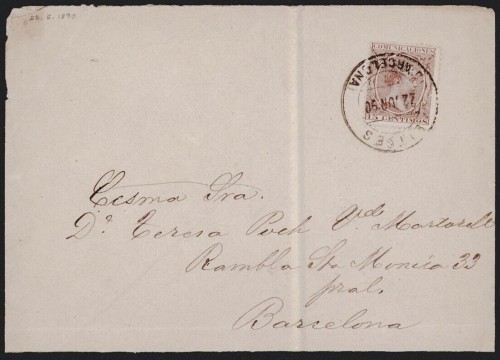 22.6.1890
COMUNICACIONES
BARCELONA
22 JUN 90
15 CENTIMOS
Sra.
Dª Teresa Poch Vda Martorell
Rambla Sta Monica 33
pral.
Barcelona